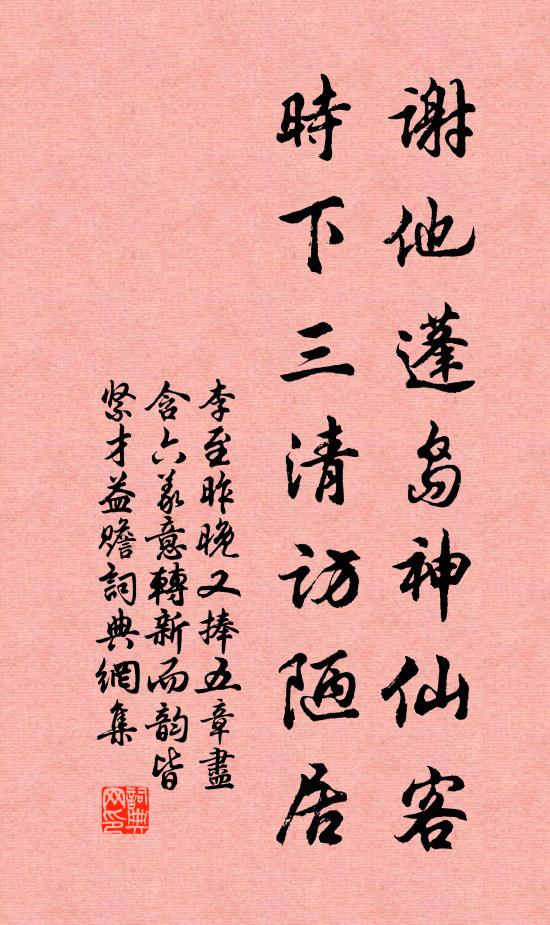 謝他蓬島神仙客
時下三清訪陋居
李至昨晚又捧五章盡
含六義意轉新而韵皆
緊才益贍詞典網集
詞典網印